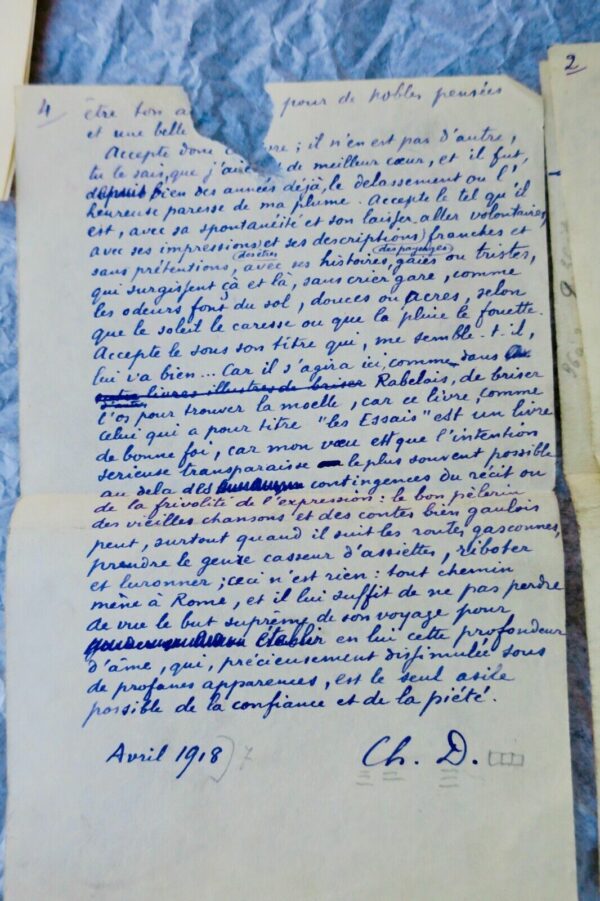 4
2
être ton a pour de nobles pensées
et une belle
Accepte donc ; il n'en est pas d'autre,
tu le sais, que j'aie de meilleur cœur, et il fut,
depuis bien des années déjà, le délassement ou l'
heureuse paresse de ma plume. Accepte le tel qu'il
est, avec sa spontanéité et son laisser aller volontaires,
avec ses impressions et ses descriptions franches et
(des êtres (des paysages)
sans prétentions, avec ses histoires, gaies ou tristes,
qui surgissent çà et là, sans crier gare, comme
les odeurs font du sol, douces ou âcres, selon
que le soleil le caresse ou que la pluie le fouette.
Accepte le sous son titre qui, me semble-t-il,
lui va bien... Car il s'agira ici, comme dans
livres illustres de briser Rabelais, de briser
l'os pour trouver la moelle, car ce livre, comme
celui qui a pour titre "les Essais" est un livre
de bonne foi, car mon vœu est que l'intention
serieuse transparaisse le plus souvent possible
au dela des contingences du récit ou
de la frivolité de l'expression : le bon pèlerin
des vieilles chansons et des contes bien gaulois
peut, surtout quand il suit les routes gasconnes,
prendre le genre casseur d'assiettes, riboter
et luronner ; ceci n'est rien : tout chemin
mène à Rome, et il lui suffit de ne pas perdre
de vue le but suprême de son voyage pour
établir en lui cette profondeur
d'âme, qui, précieusement dissimulée sous
de profanes apparences, est le seul asile
possible de la confiance et de la piété.
Avril 1918) 7
Ch. D.